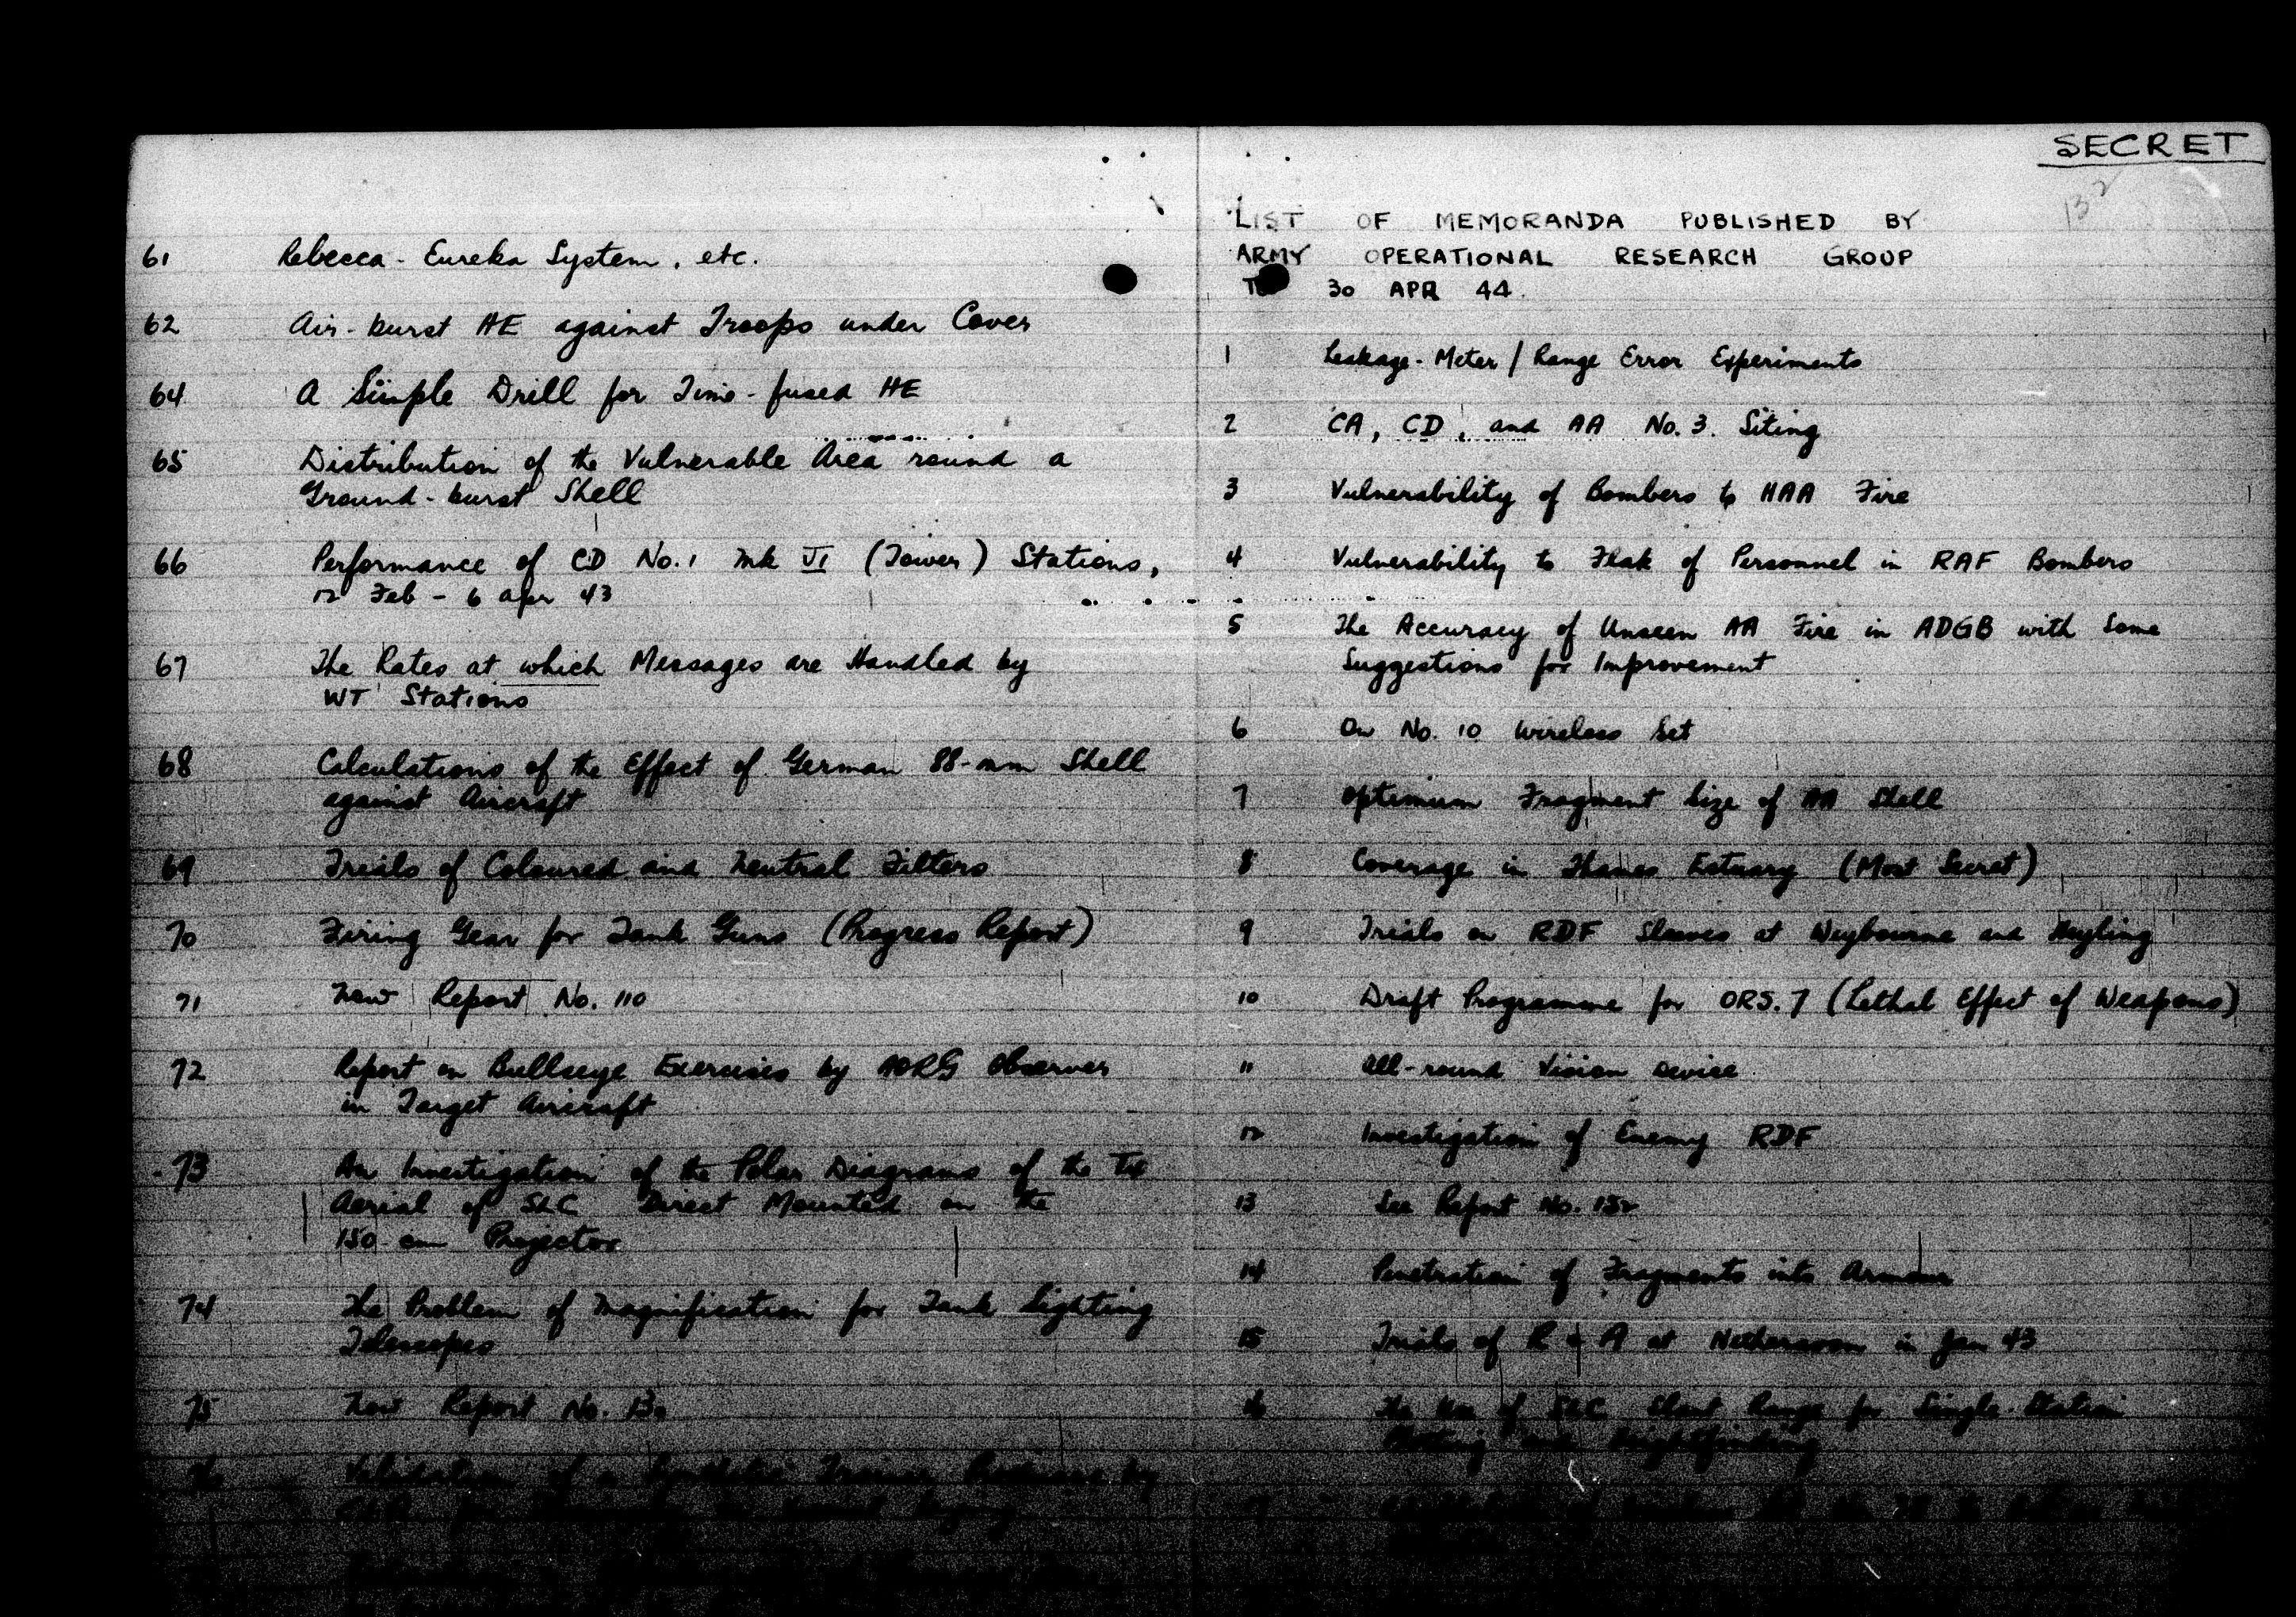 61 Rebecca - Eureka System, etc.
62 Air-burst HE against Troops under Cover
64 A Simple Drill for Time-fused HE
65 Distribution of the Vulnerable Area round a
Ground-burst Shell
66 Performance of CD No.1 Mk VI (Tower) Stations,
12 Feb - 6 Apr 43
67 The Rates at which Messages are Handled by
WT Stations
68 Calculations of the Effect of German 88-mm Shell
against Aircraft
69 Trials of Coloured and Neutral Filters
70 Firing Gear for Tank Guns (Progress Report)
71 Now Report No. 110
72 Report on Bullseye Exercises by AORG Observer
in Target Aircraft
73 An Investigation of the Polar Diagrams of the Tx
Aerial of SLC Direct Mounted on the
150-cm Projector
74 The Problem of Magnification for Tank Sighting
Telescopes
75 Now Report No.
Validation of a Synthetic Trainer by
SECRET
132
LIST OF MEMORANDA PUBLISHED BY
ARMY OPERATIONAL RESEARCH GROUP
TO 30 APR 44.
1 Leakage-Meter / Range Error Experiments
2 CA, CD, and AA No. 3. Siting
3 Vulnerability of Bombers to HAA Fire
4 Vulnerability to Flak of Personnel in RAF Bombers
5 The Accuracy of Unseen AA Fire in ADGB with Some
Suggestions for Improvement
6 On No. 10 Wireless Set
7 Optimum Fragment Size of AA Shell
8 Coverage in Thames Estuary (Most Secret)
9 Trials on RDF Sleeves at Weybourne and Hayling
10 Draft Programme for ORS. 7 (Lethal Effect of Weapons)
11 All-round Vision Device
12 Investigation of Enemy RDF
13 See Report No. 152
14 Penetration of Fragments into Armour
15 Trials of R & A at Netheravon in Jan 43
16 The Use of SLC Slant Range for Single-Station
Plotting and Heightfinding